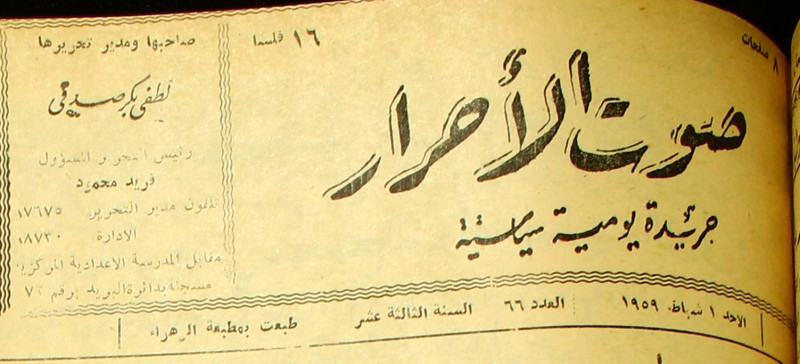 ٨ صفحات
١٦ فلسا
صوت الأحرار
جريدة يومية سياسية
صاحبها ومدير تحريرها
لطفي بكر صدقي
رئيس التحرير المسؤول
فريد محمود
تلفون مدير التحرير ١٧٦٧٥
الادارة ١٨٧٣٠
مقابل المدرسة الاعدادية المركزية
مسجلة بدائرة البريد برقم
الاحد ١ شباط ١٩٥٩
العدد ٦٦
السنة الثالثة عشر
طبعت بمطبعة الزهراء